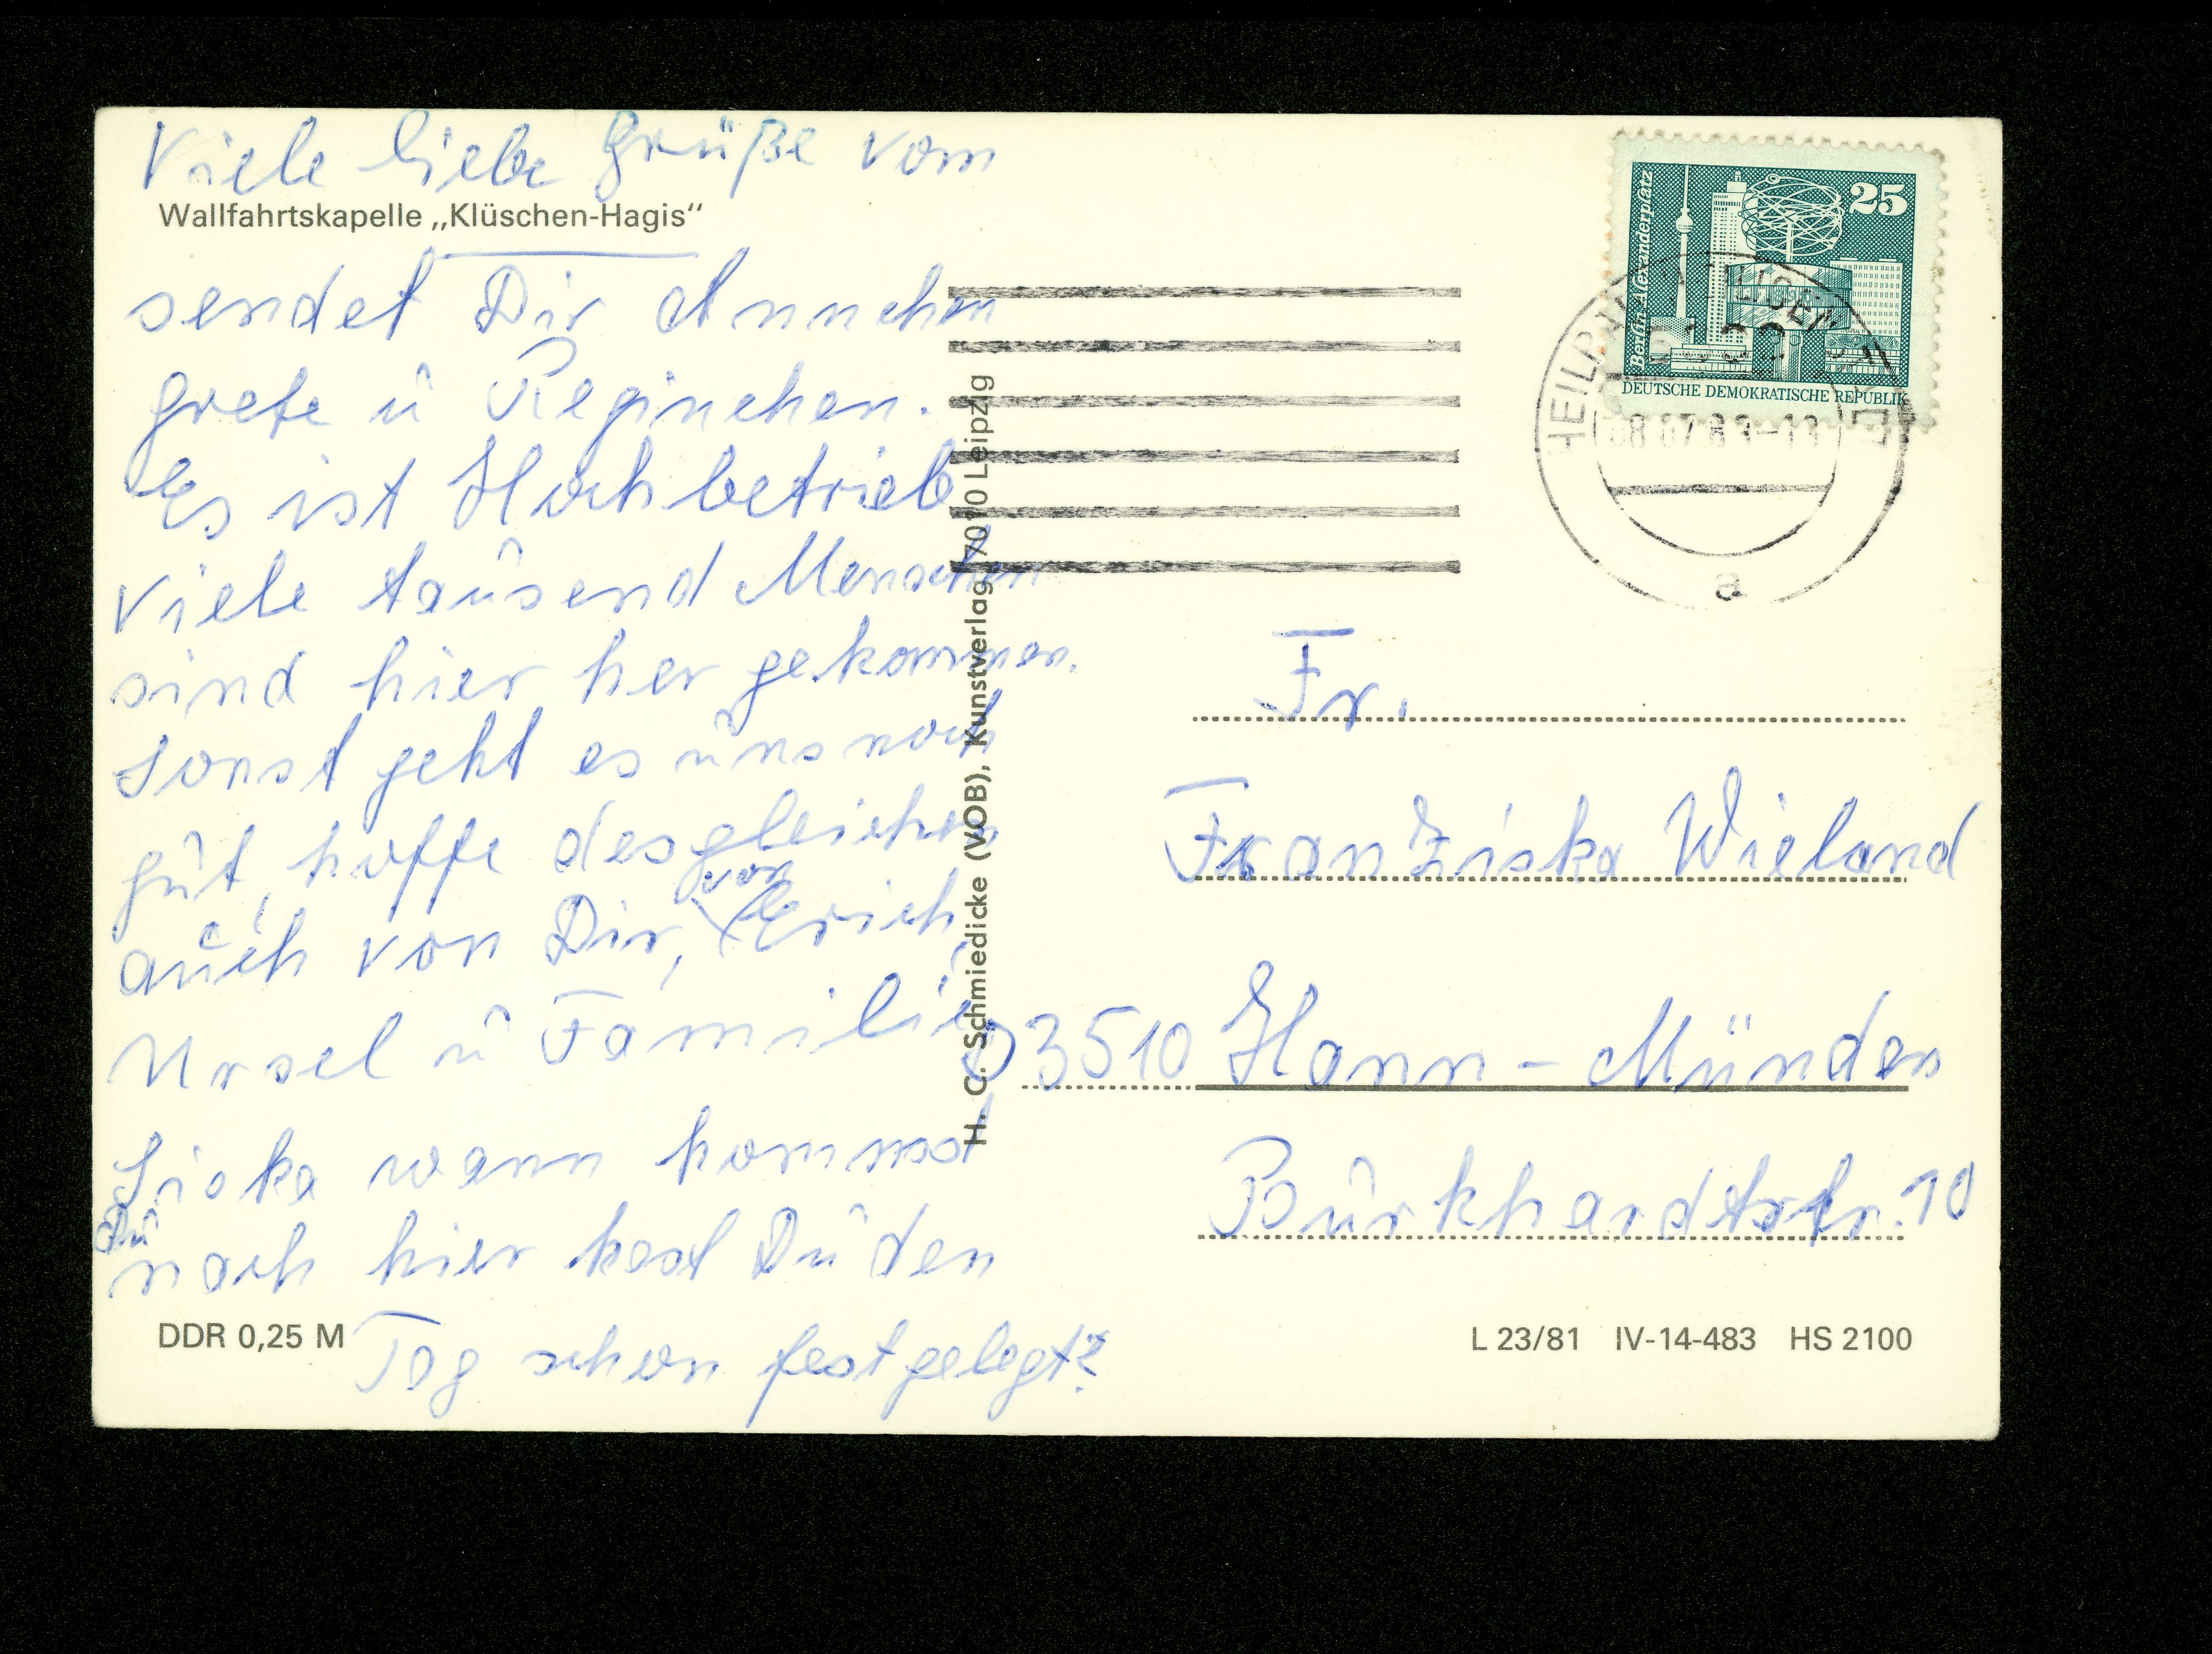 Viele liebe Grüße vom
Wallfahrtskapelle „Klüschen-Hagis“
sendet Dir Annchen
Grete ū Reginchen.
Es ist Hochbetrieb
viele taūsend Menschen
sind hier her gekommen.
Sonst geht es ūns noch
gūt, hoffe desgleichen
aūch von Dir, von Erich,
Ursel ū Familie
Siska wann kommst
Dū
nach hier hast Dū den
Tag schon festgelegt?
DDR 0,25 M
H. C. Schmiedicke (VOB), Kunstverlag, 7010 Leipzig
Berlin-Alexanderplatz
25
DEUTSCHE DEMOKRATISCHE REPUBLIK
a
Fr.
Franziska Wieland
D3510 Hann-Münden
Būrkhardtstr. 10
L 23/81 IV-14-483 HS 2100